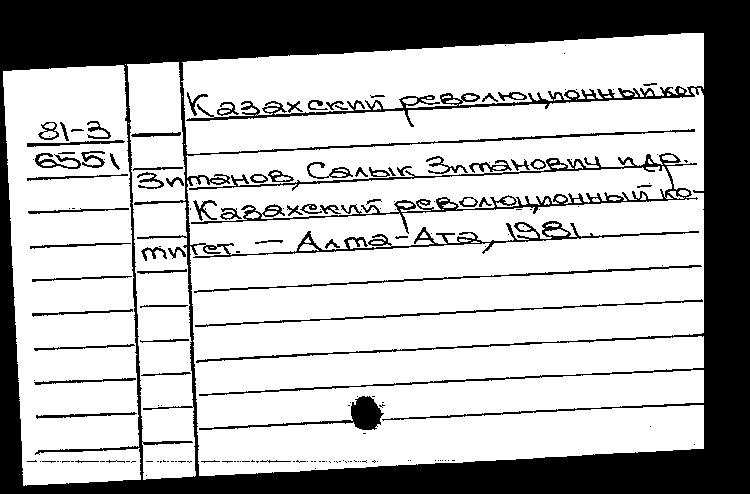 Казахский революционный ком
81-3
6551
Зиманов, Салык Зиманович и др.
Казахский революционный ко-
митет. — Алма-Ата, 1981.